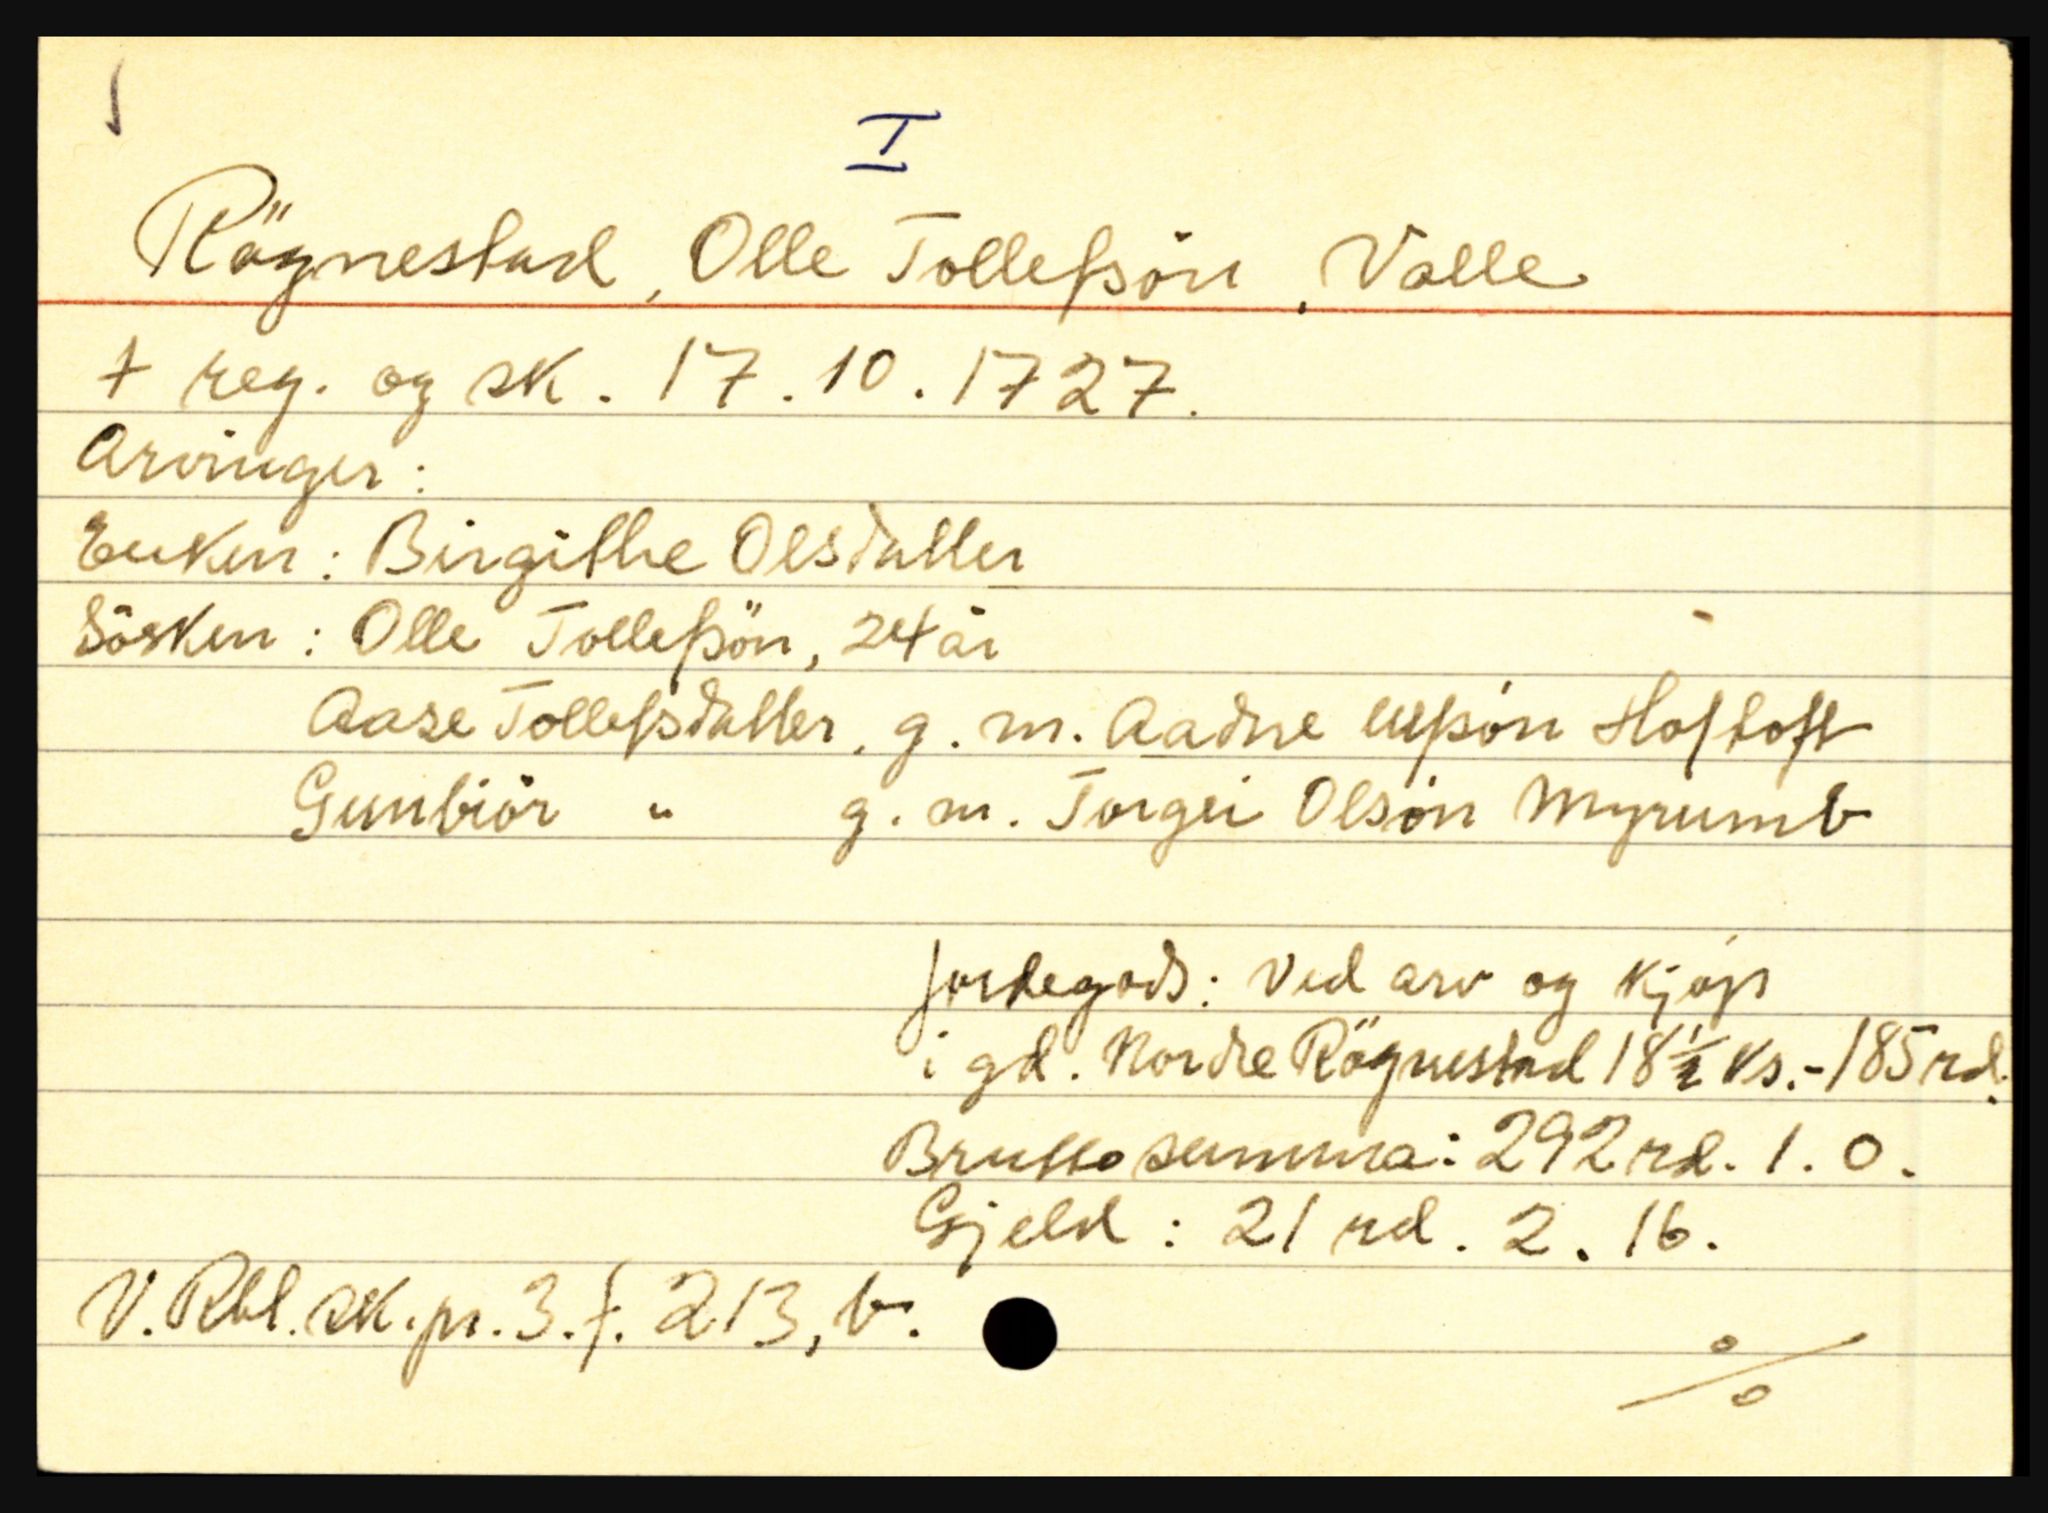 I
Rögnestad, Olle Tollefsön, Valle
† reg. og sk. 17.10.1727.
Arvinger:
Enken: Birgithe Olsdatter
Sösken: Olle Tollefsön, 24 år
Aase Tollefsdatter, g. m. Aadne Ulfsön Hoftoft
Gunbiör " g. m. Torgei Olsön Myrumb
Jordegods: Ved arv og kjøp
i gd. Nordre Rögnestad 18 1/2 ks. - 185 rd.
Brutto summa: 292 rd. 1. 0.
Gjeld: 21 rd. 2. 16.
V. Rbl. sk. pr. 3. f. 213, b.
%